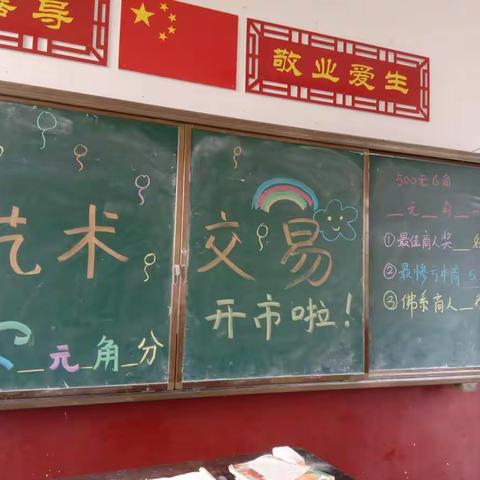 导
敬业爱生
艺术交易
开市啦！
元角分
500元6角
元 角
①最佳商人奖
②最惨亏本商 5
③佛系商人